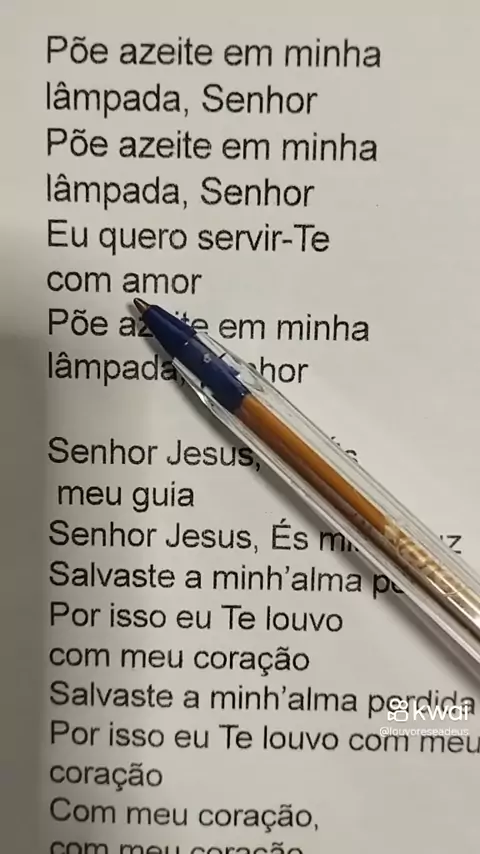 Põe azeite em minha
lâmpada, Senhor
Põe azeite em minha
lâmpada, Senhor
Eu quero servir-Te
com amor
Põe azeite em minha
lâmpada, Senhor
Senhor Jesus, És
meu guia
Senhor Jesus, És minha luz
Salvaste a minh'alma
Por isso eu Te louvo
com meu coração
Salvaste a minh'alma perdida
Por isso eu Te louvo com meu
coração
Com meu coração,
com meu coração
kwai
@louvoreseadeus